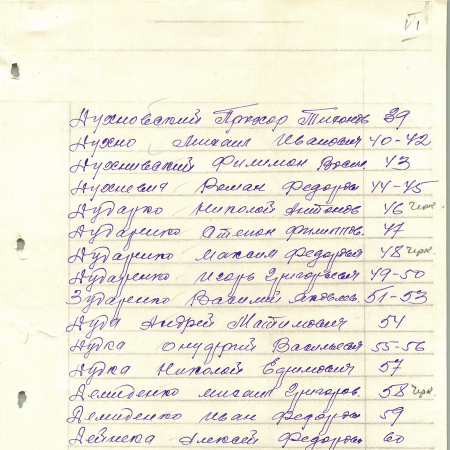 VI
Духновский Прохор Тихонов 39
Духно Михаил Иванович 40-42
Духнивский Филимон Васил. 43
Духневич Роман Федоров 44-45
Дударко Николай Антонов 46 Черк.
Дударенко Степон Филиппов. 47
Дударенко Максим Федоров 48 Черк.
Дударенко Игорь Григорьевич 49-50
Зударенко Василий Яковлев. 51-53
Дуда Андрей Матимович 54
Дудка Онуфрий Васильевич 55-56
Дудка Николай Ефимович 57
Демиденко Михаил Григоров. 58 Черк.
Демиденко Иван Федоров 59
Дейнека Алексей Федоров 60